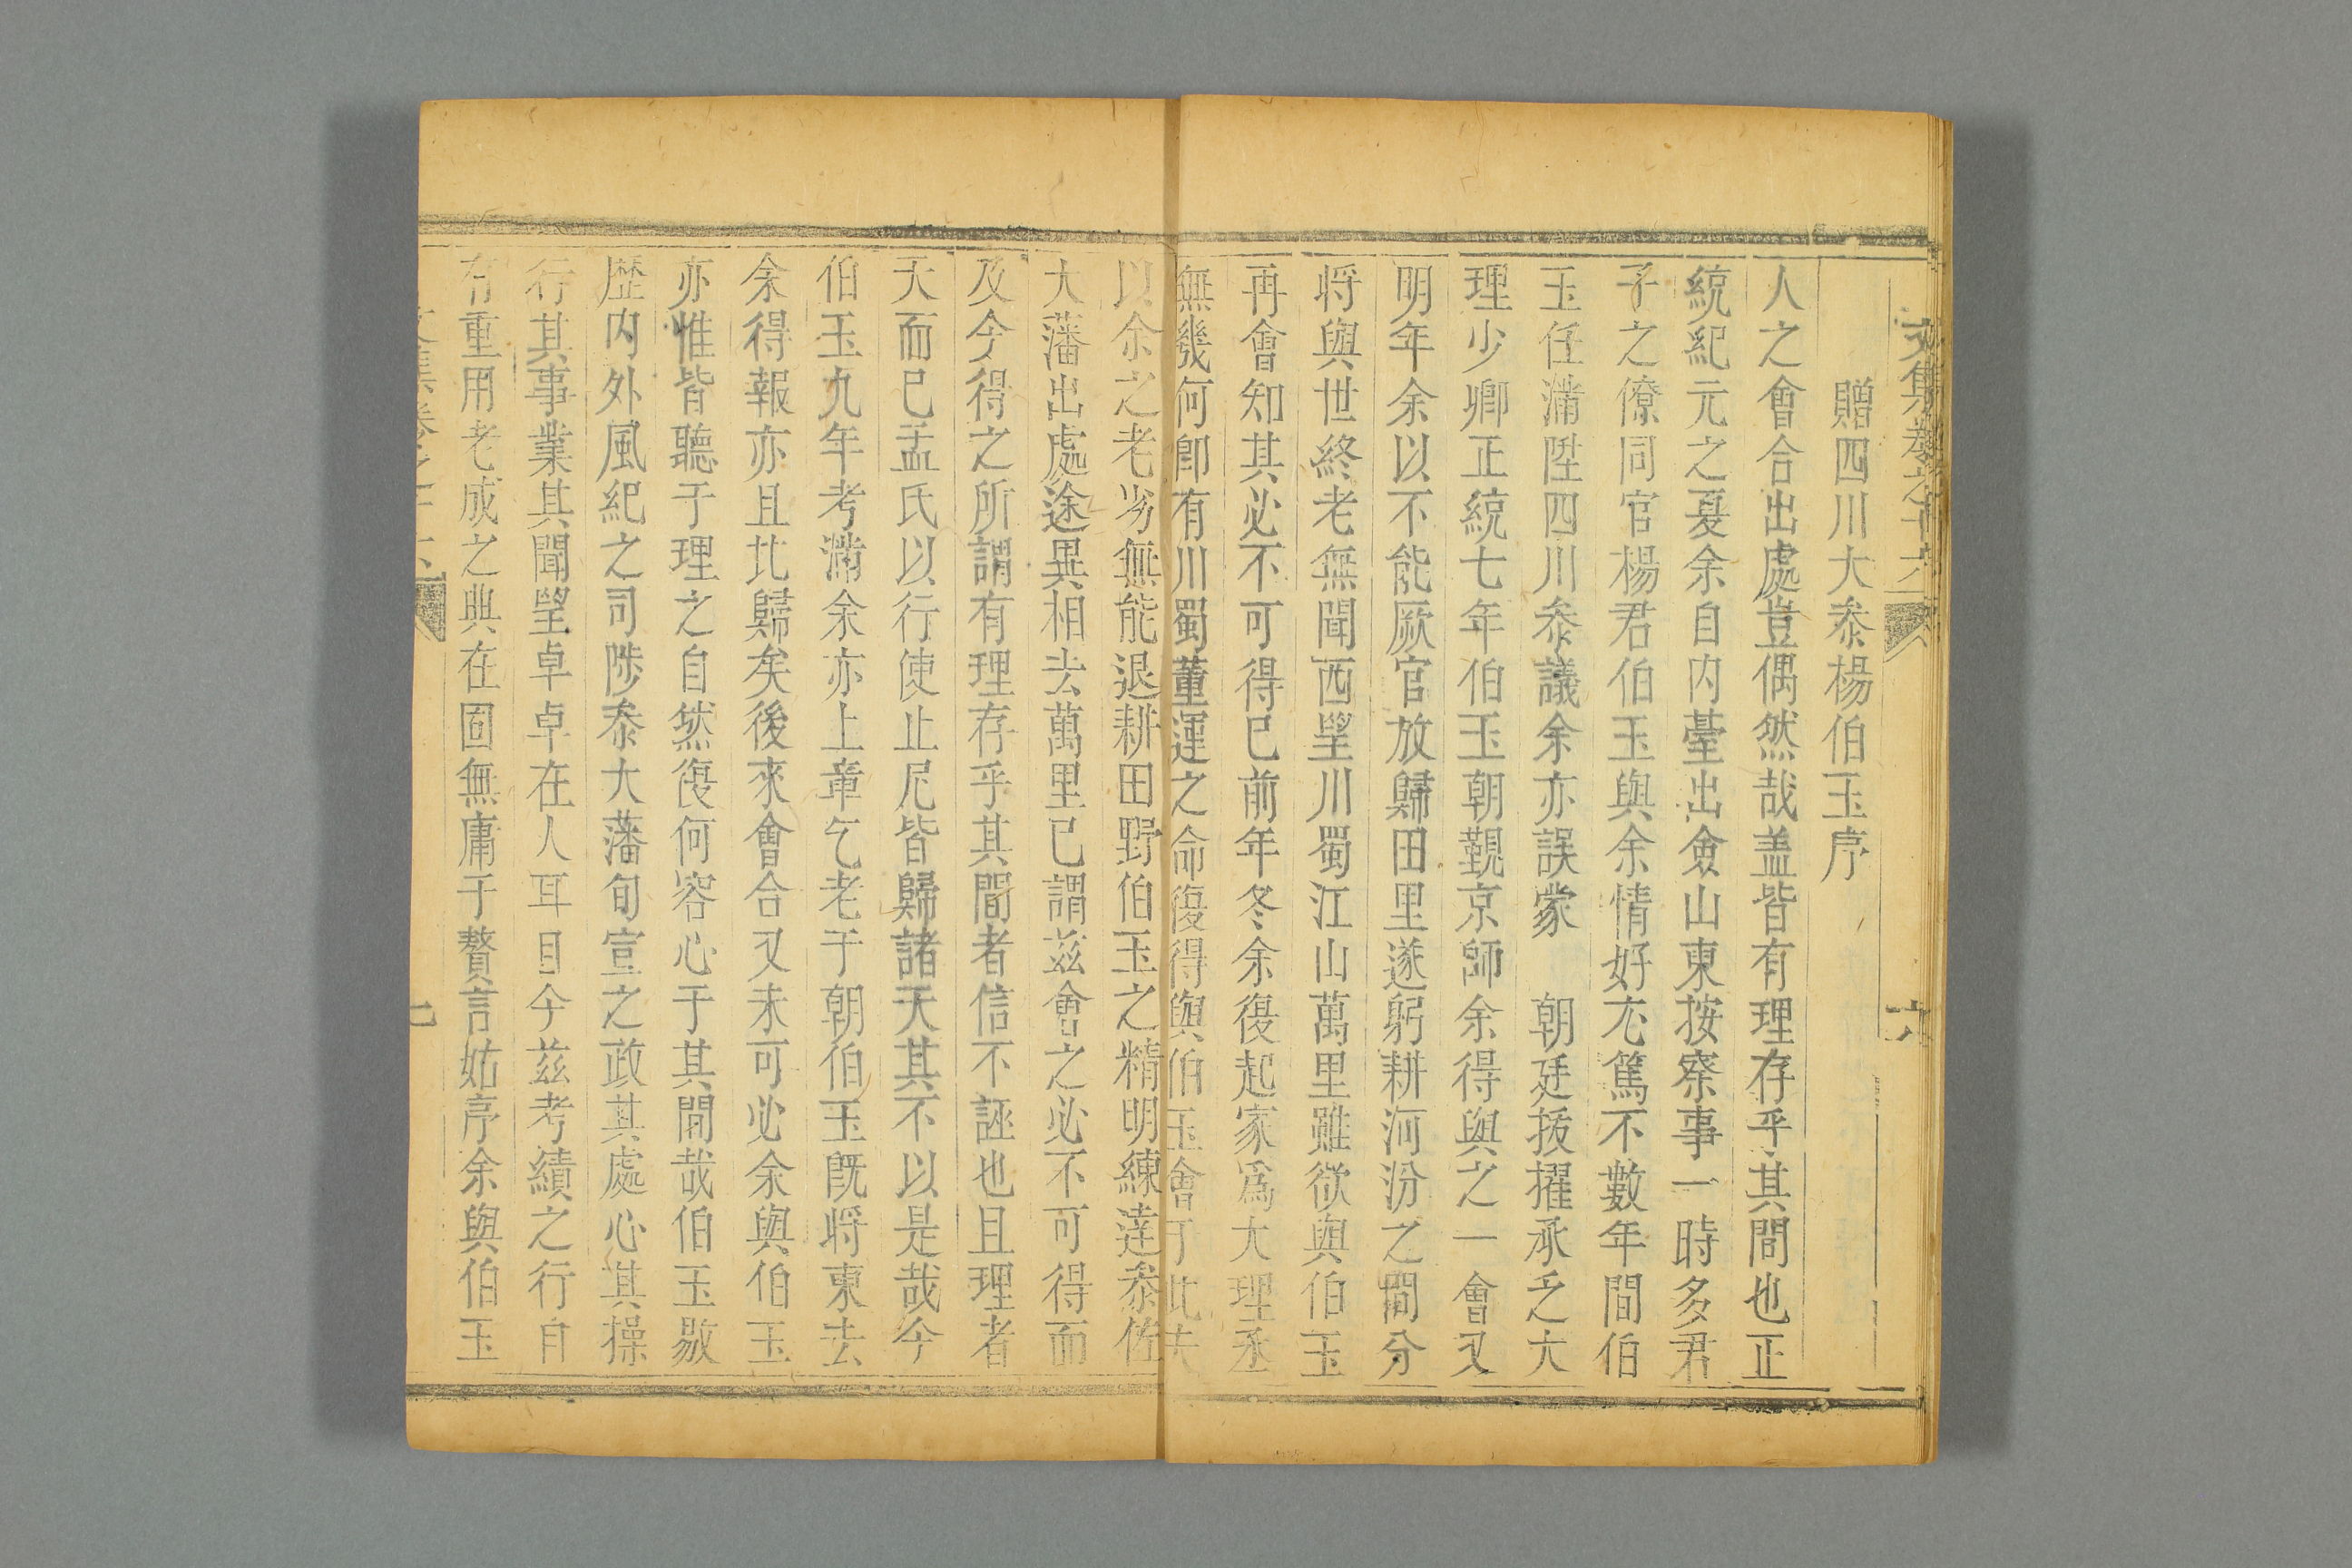 文集卷之十六
六
贈四川大叅楊伯玉序
人之會合出處豈偶然哉盖皆有理存乎其間也正
統紀元之夏余自内臺出僉山東按察事一時多君
子之僚同官楊君伯玉與余情好尤篤不數年間伯
玉任滿陞四川叅議余亦誤蒙　朝廷拔擢承乏大
理少卿正統七年伯玉朝覲京師余得與之一會又
明年余以不能厥官放歸田里遂躬耕河汾之間分
将與世終老無聞西望川蜀江山萬里雖欲與伯玉
再會知其必不可得已前年冬余復起家爲大理丞
無幾何卽有川蜀董運之命復得與伯玉會于此夫
以余之老劣無能退耕田野伯玉之精明練達叅佐
大藩出處途異相去萬里已謂兹會之必不可得而
及今得之所謂有理存乎其間者信不誣也且理者
天而已孟氏以行使止尼皆歸諸天其不以是哉今
伯玉九年考滿余亦上章乞老于朝伯玉既将東去
余得報亦且北歸矣後來會合又未可必余與伯玉
亦惟皆聽于理之自然復何容心于其間哉伯玉敭
歴内外風紀之司陟叅大藩旬宣之政其處心其操
行其事業其聞望卓卓在人耳目今兹考績之行自
有重用老成之典在固無庸于贅言姑序余與伯玉
文集卷之十六
七